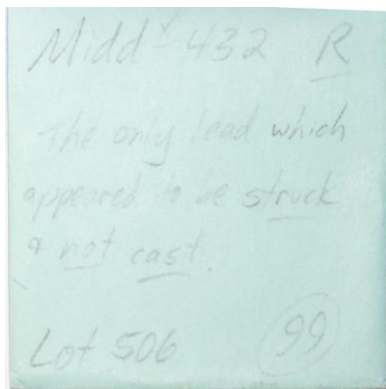 Middx 432 R
The only lead which
appeared to be struck
& not cast.
Lot 506 99